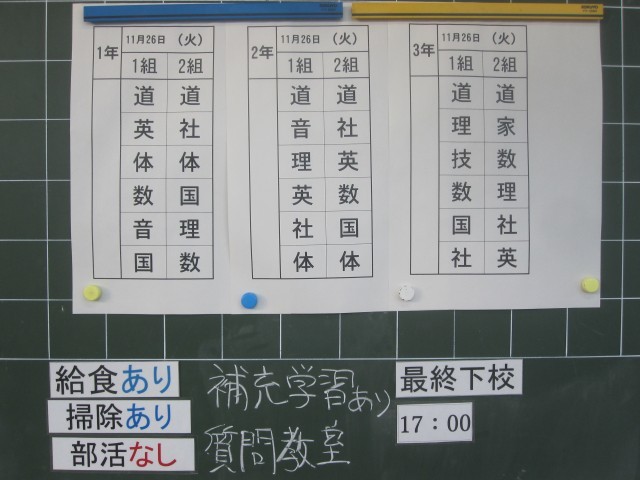 1年 11月26日 （火）
1組 2組
道 道
英 社
体 体
数 国
音 理
国 数
2年 11月26日 （火）
1組 2組
道 道
音 社
理 英
英 数
社 国
体 体
3年 11月26日 （火）
1組 2組
道 道
理 家
技 数
数 理
国 社
社 英
給食あり
掃除あり
部活なし
補充学習あり
質問教室
最終下校
17：00